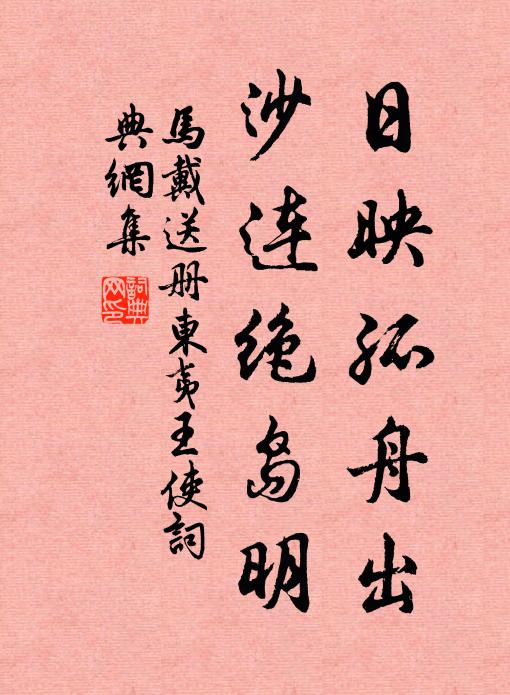 日映孤舟出
沙連絶島明
馬戴送册東夷王使詞
典網集
詞典
网印